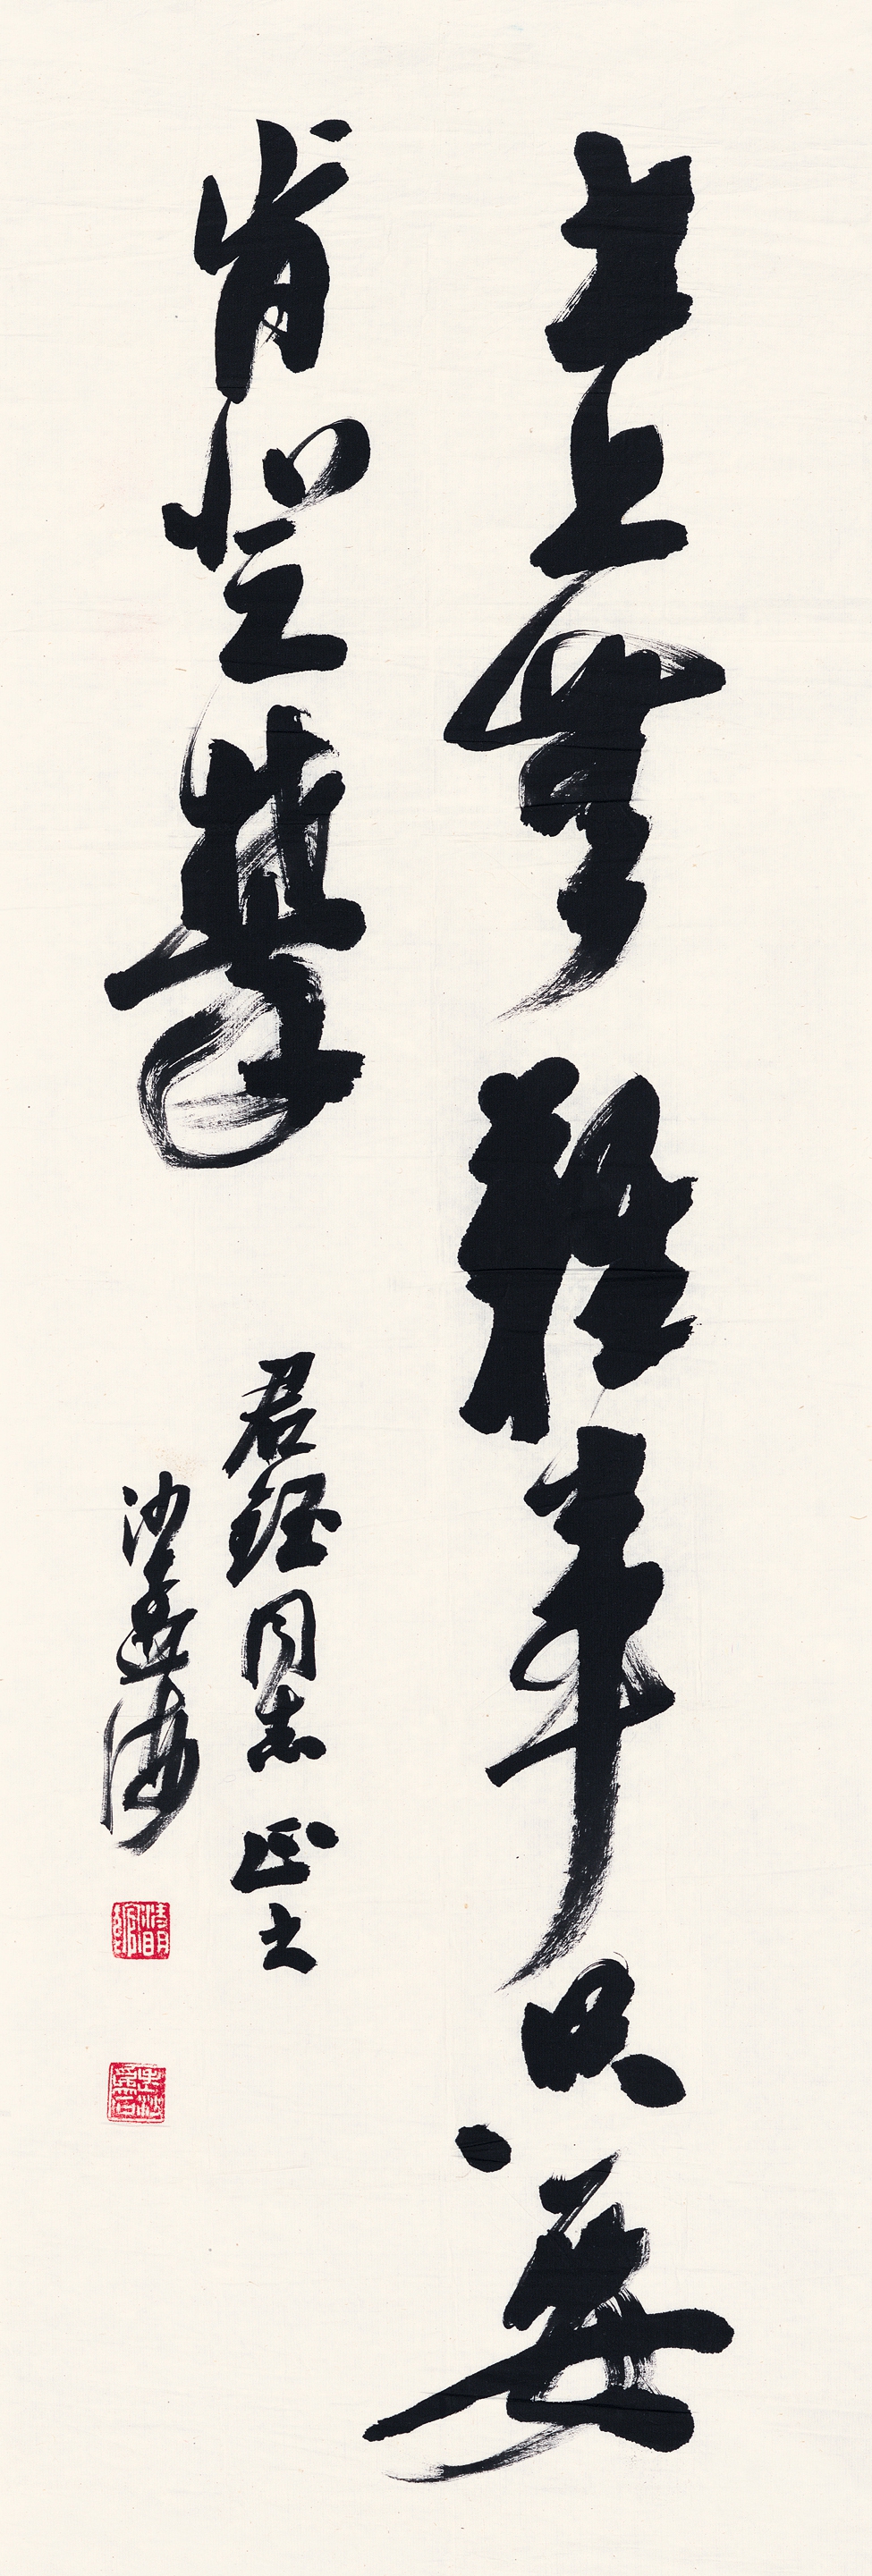 世上無難事只要
肯登攀
君鉦同志正之
沙孟海